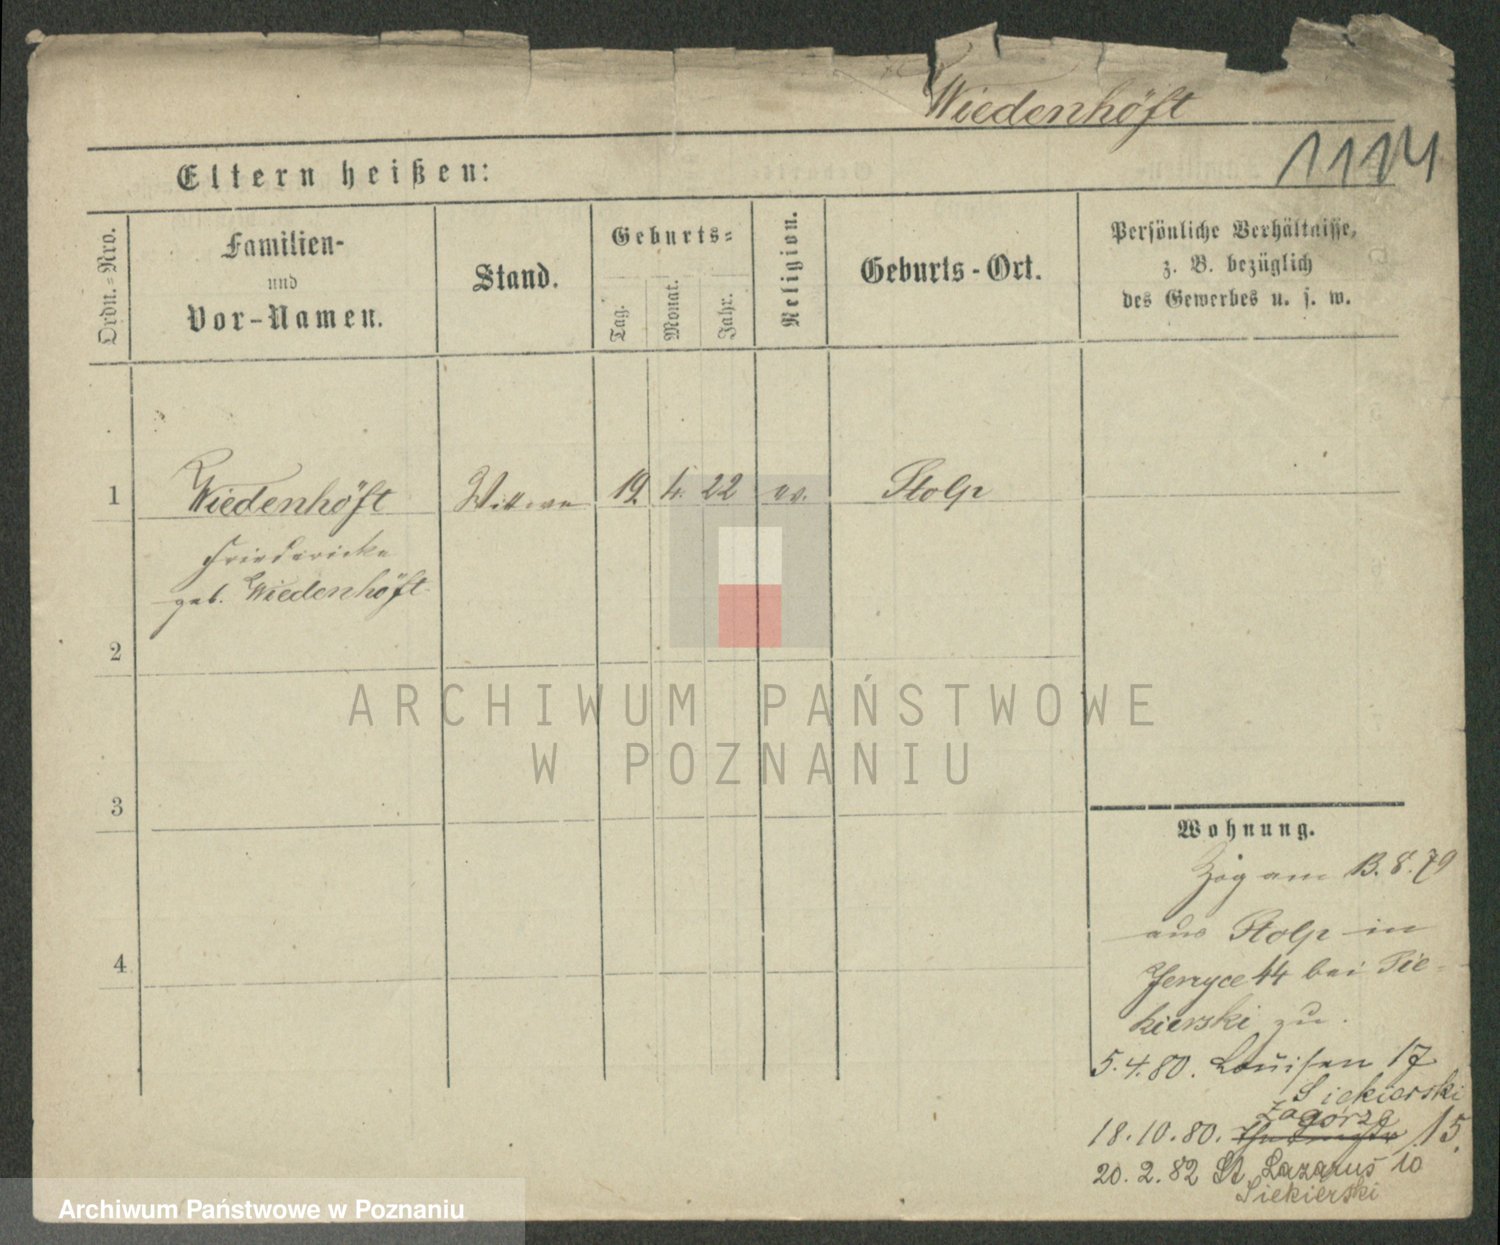 Wiedenhöft
1114
Eltern heißen:
Ordn.-Nro.
Familien-
und
Vor-Namen.
Stand.
Geburts-
Tag.
Monat.
Jahr.
Religion.
Geburts-Ort.
Persönliche Verhältnisse,
z. B. bezüglich
des Gewerbes u. s. w.
1 Wiedenhöft Wittwe 19 4. 22 ev. Stolp
Friedericke
geb. Wiedenhöft
2
3
4
Wohnung.
Zog am 13.8.79
aus Stolp in
Jerzyce 44 bei Sie-
kierski zu.
5.4.80. Louisen 17
Siekierski
Zagórze
18.10.80. 15.
20.2.82 St. Lazarus 10
Siekierski
ARCHIWUM PAŃSTWOWE
W POZNANIU
Archiwum Państwowe w Poznaniu